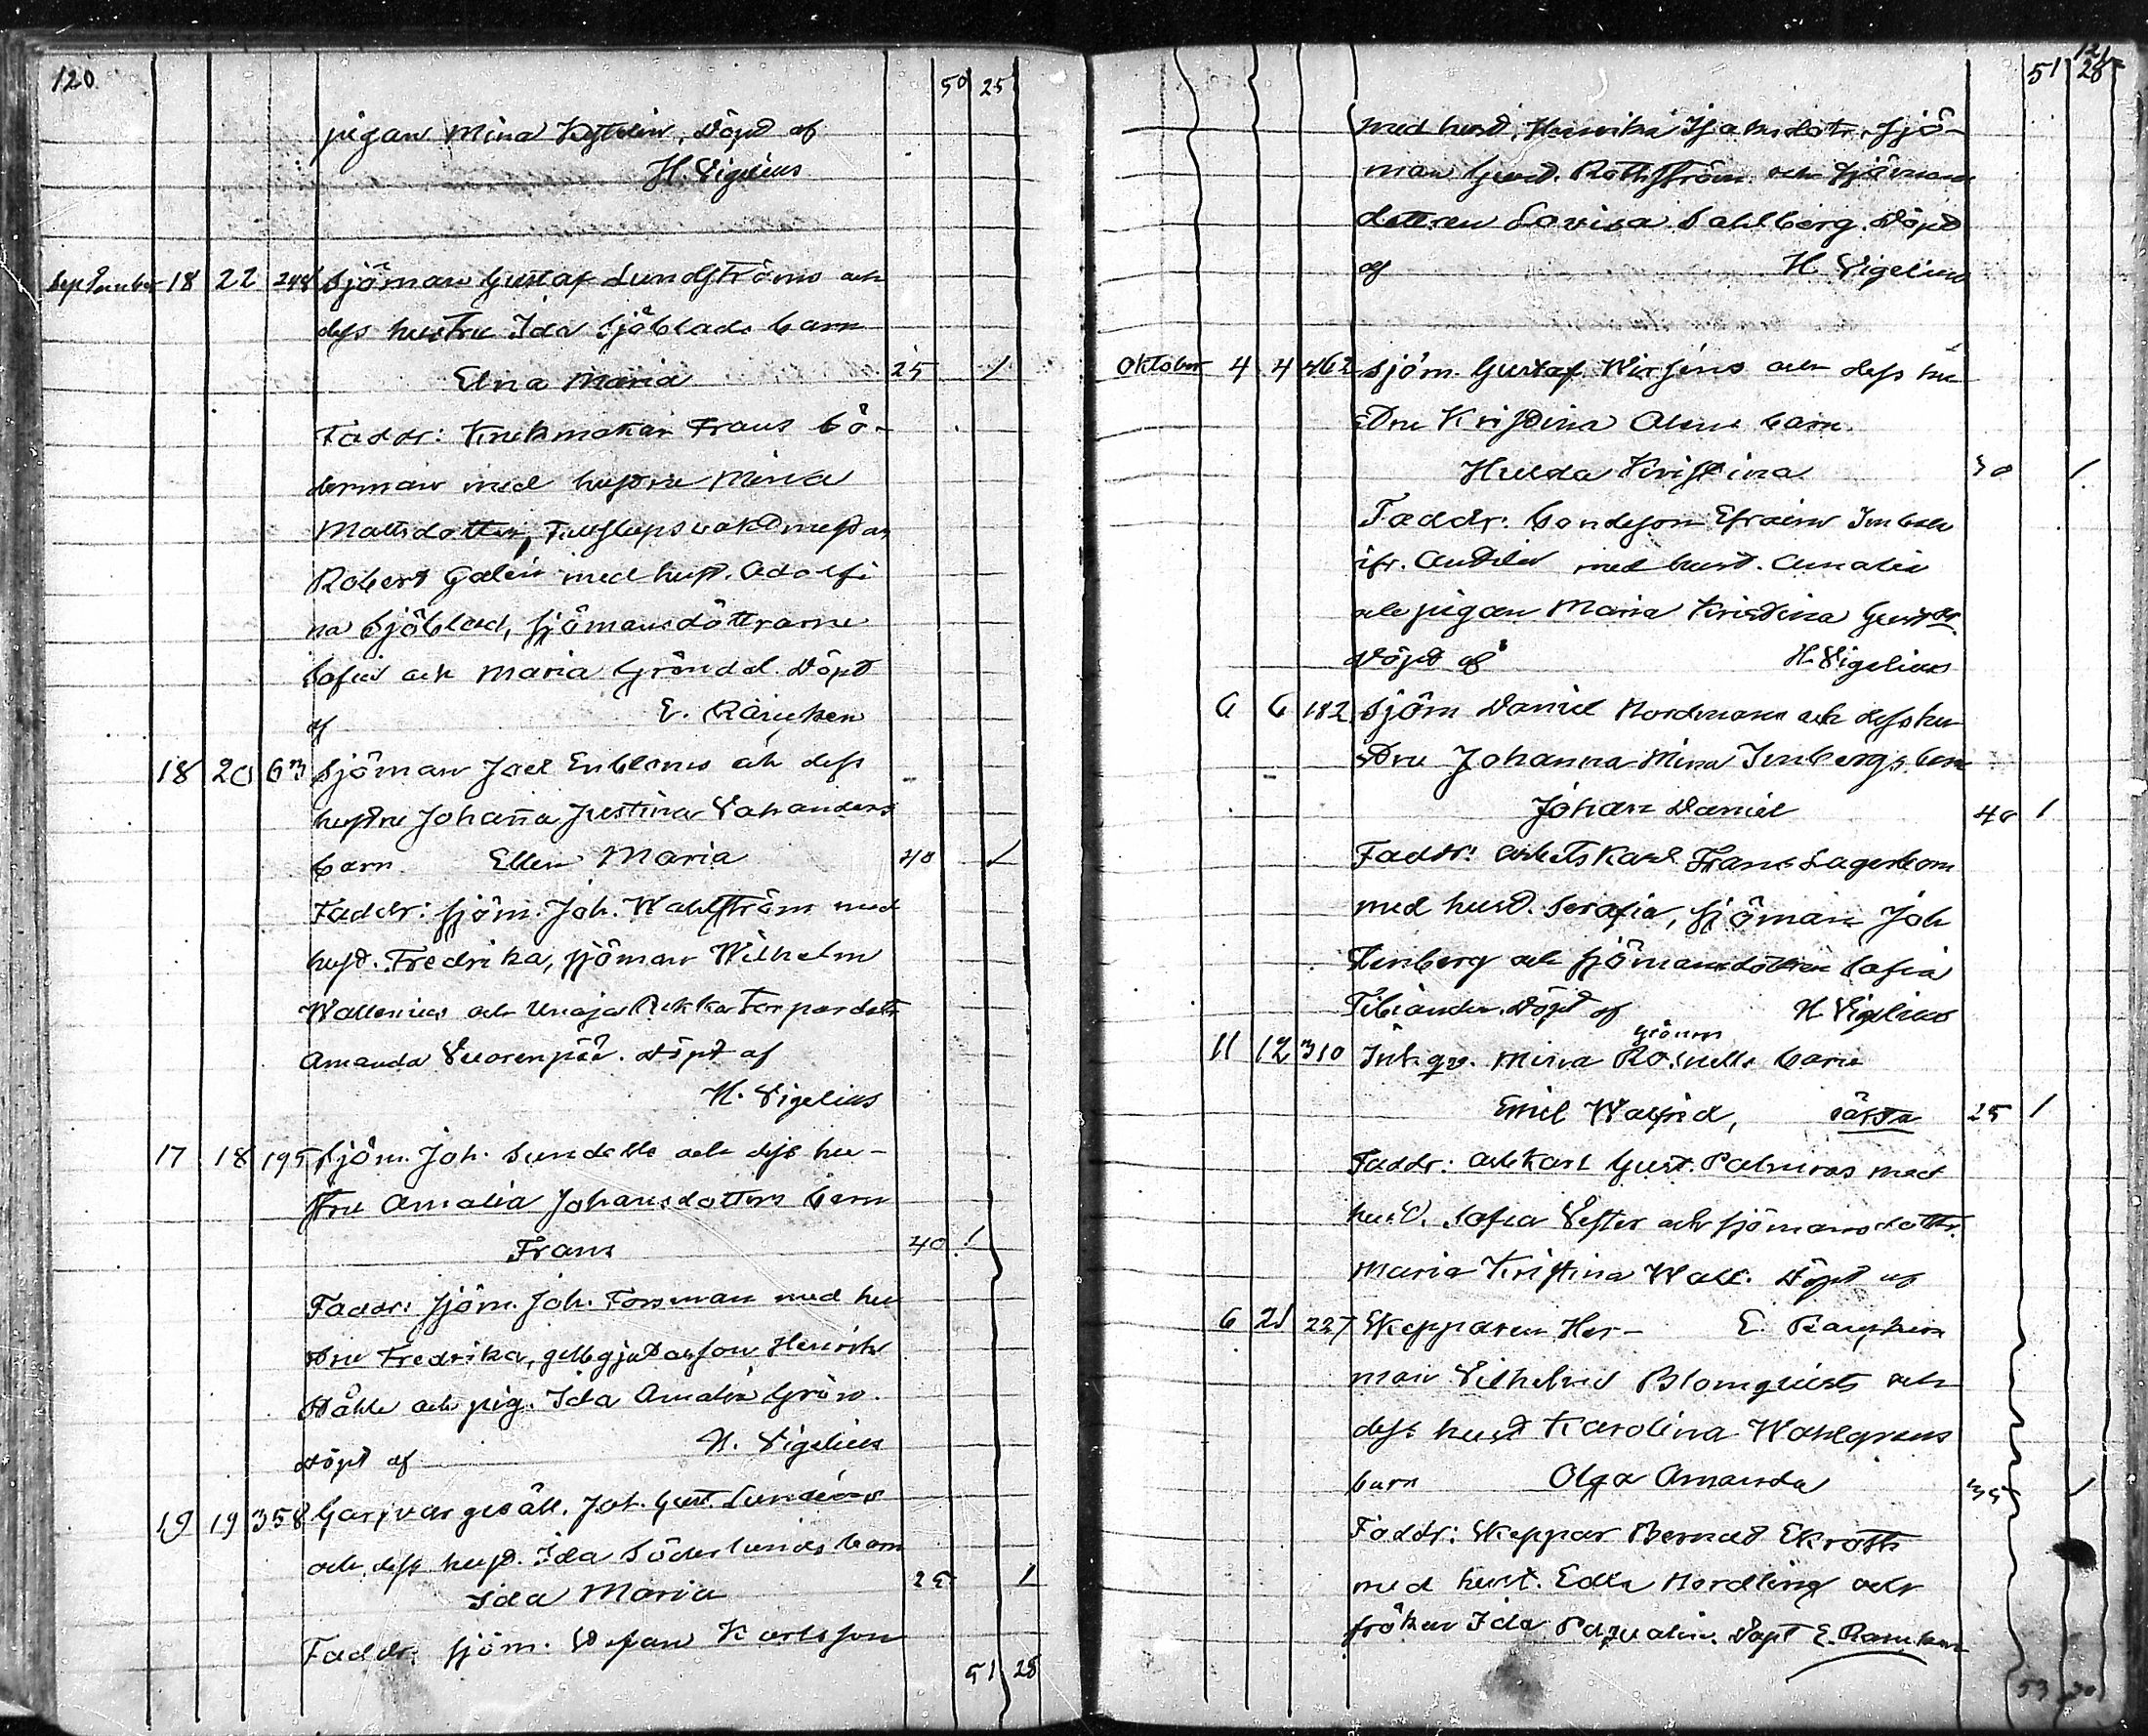 120
50 25
pigan Mina Döpt af
H. Vigelius
September 18 22 248 Sjöman Gustaf Lundströms och
dess hustru Ida Sjöblads barn
Elna Maria 25 1
Faddr: Krukmakar Frans Sö-
derman med hustru Mina
Mattsdotter, Robert Galin med hust. Adolfi
na Sjöblad, sjömansdöttrarne
Sofia och Maria Gröndal. Döpt
af E. Rancken
18 20 63 Sjöman Joel Enbloms och dess
hustru Johanna Justina Vahanders
barn Ellen Maria 40 1
Faddr: sjöm. Joh. Wahlström med
hust. Fredrika, sjöman Wilhelm
Wallenius och Unaja Torpardottr
Amanda Vuorenpää. Döpt af
H. Vigelius
17 18 195 Sjöm. Joh. Sundells och dess hu-
stru Amalia Johansdotters barn
Frans 40 1
Faddr: Sjöm. Joh. Forsman med hu
stru Fredrika, gelbgjutaresson Henrik
Ståhle och pig. Ida Amalia Grön.
Döpt af H. Vigelius
19 19 358 Garfvar gesäll. Joh. Gust. Lundéns
och dess hust. Ida Söderlunds barn
Ida Maria 25 1
Faddr. sjöm. Stefan Karlsson
51 25
121
51 25
med hust. Henrika Isaksdotr. sjö-
man Gust. Rothström och sjömans
dottren Lovisa Sahlberg. Döpt
af H. Vigelius
Oktober 4 4 462 Sjöm. Gustaf Wirséns och dess hu
stru Kristina Alens barn
Hulda Kristina 30 1
Faddr: Bondeson Efraim
ifr. med hust. Amalia
och pigan Maria Kristina Gustdr.
Döpt af H. Vigelius
6 6 182 Sjöm Daniel Nordmans och dess hu
stru Johanna Mina Inbergs barn
Johan Daniel 40 1
Faddr: arbetskarl Frans Lagerbom
med hust. Serafia, sjöman Joh
och sjömansdottren Sofia
Döpt af H Vigelius
11 12 310 Inh. qv. Mina Rosnells barn
Emil Walfrid, oäkta 25 1
Faddr: arbkarl Gust. Palmroos med
hust. Sofia Vester och sjömansdottr.
Maria Kristina Wall. Döpt af
6 21 227 Skepparen Her- E. Rancken
man Vilhelm Blomqvists och
dess hust Karolina Wahlgrens
barn Olga Amanda 35 1
Faddr: Skeppar Bernat Ekroth
med hust. Edla Nordling och
fröken Ida Döpt E. Rancken
53